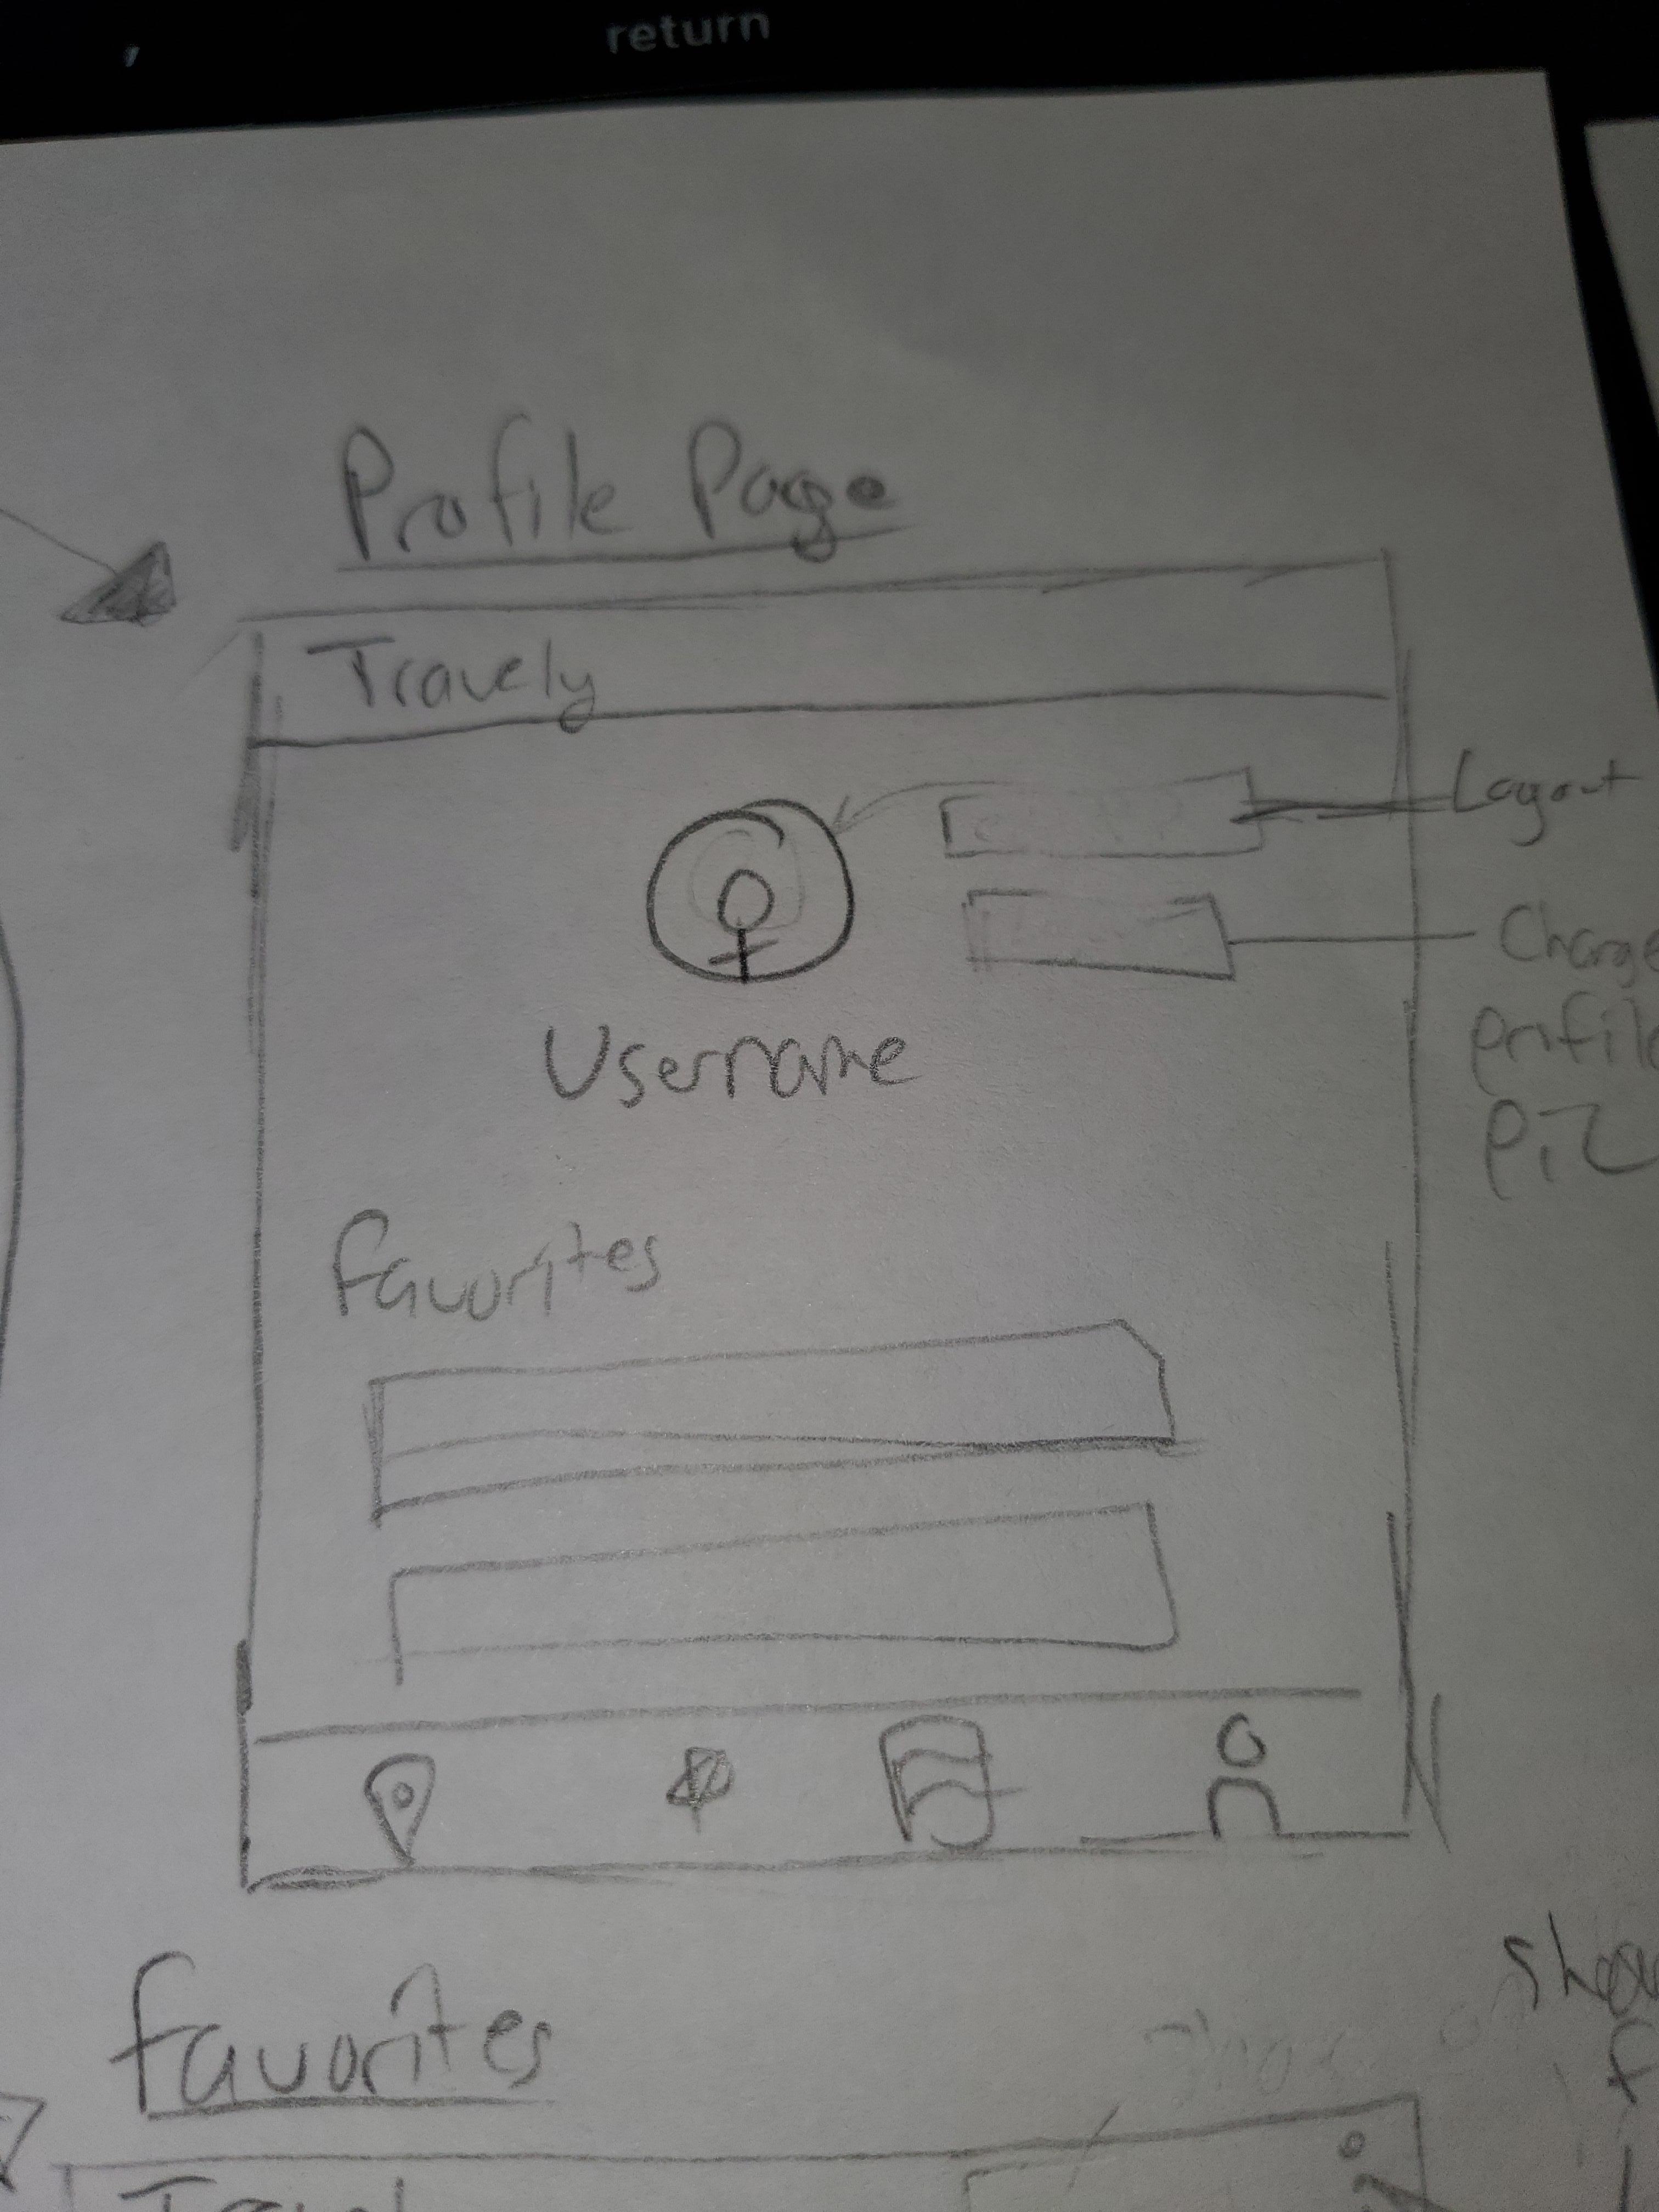 return
Profile Page
Travely
Logout
Change
profile
pic
Username
Favorites
Favorites